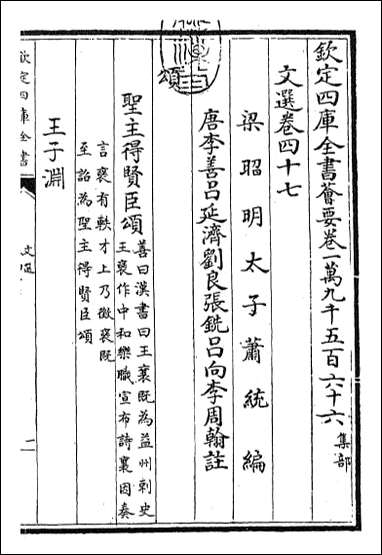 欽定四庫全書薈要卷一萬九千五百六十六 集部
文選卷四十七
梁昭明太子蕭統編
唐李善呂延濟劉良張銑呂向李周翰註
頌
聖主得賢臣頌
善曰漢書曰王襄既為益州刺史
王褒作中和樂職宣布詩襄因奏
言褒有軼才上乃徵褒既
至詔為聖主得賢臣頌
王子淵
欽定四庫全書
文選